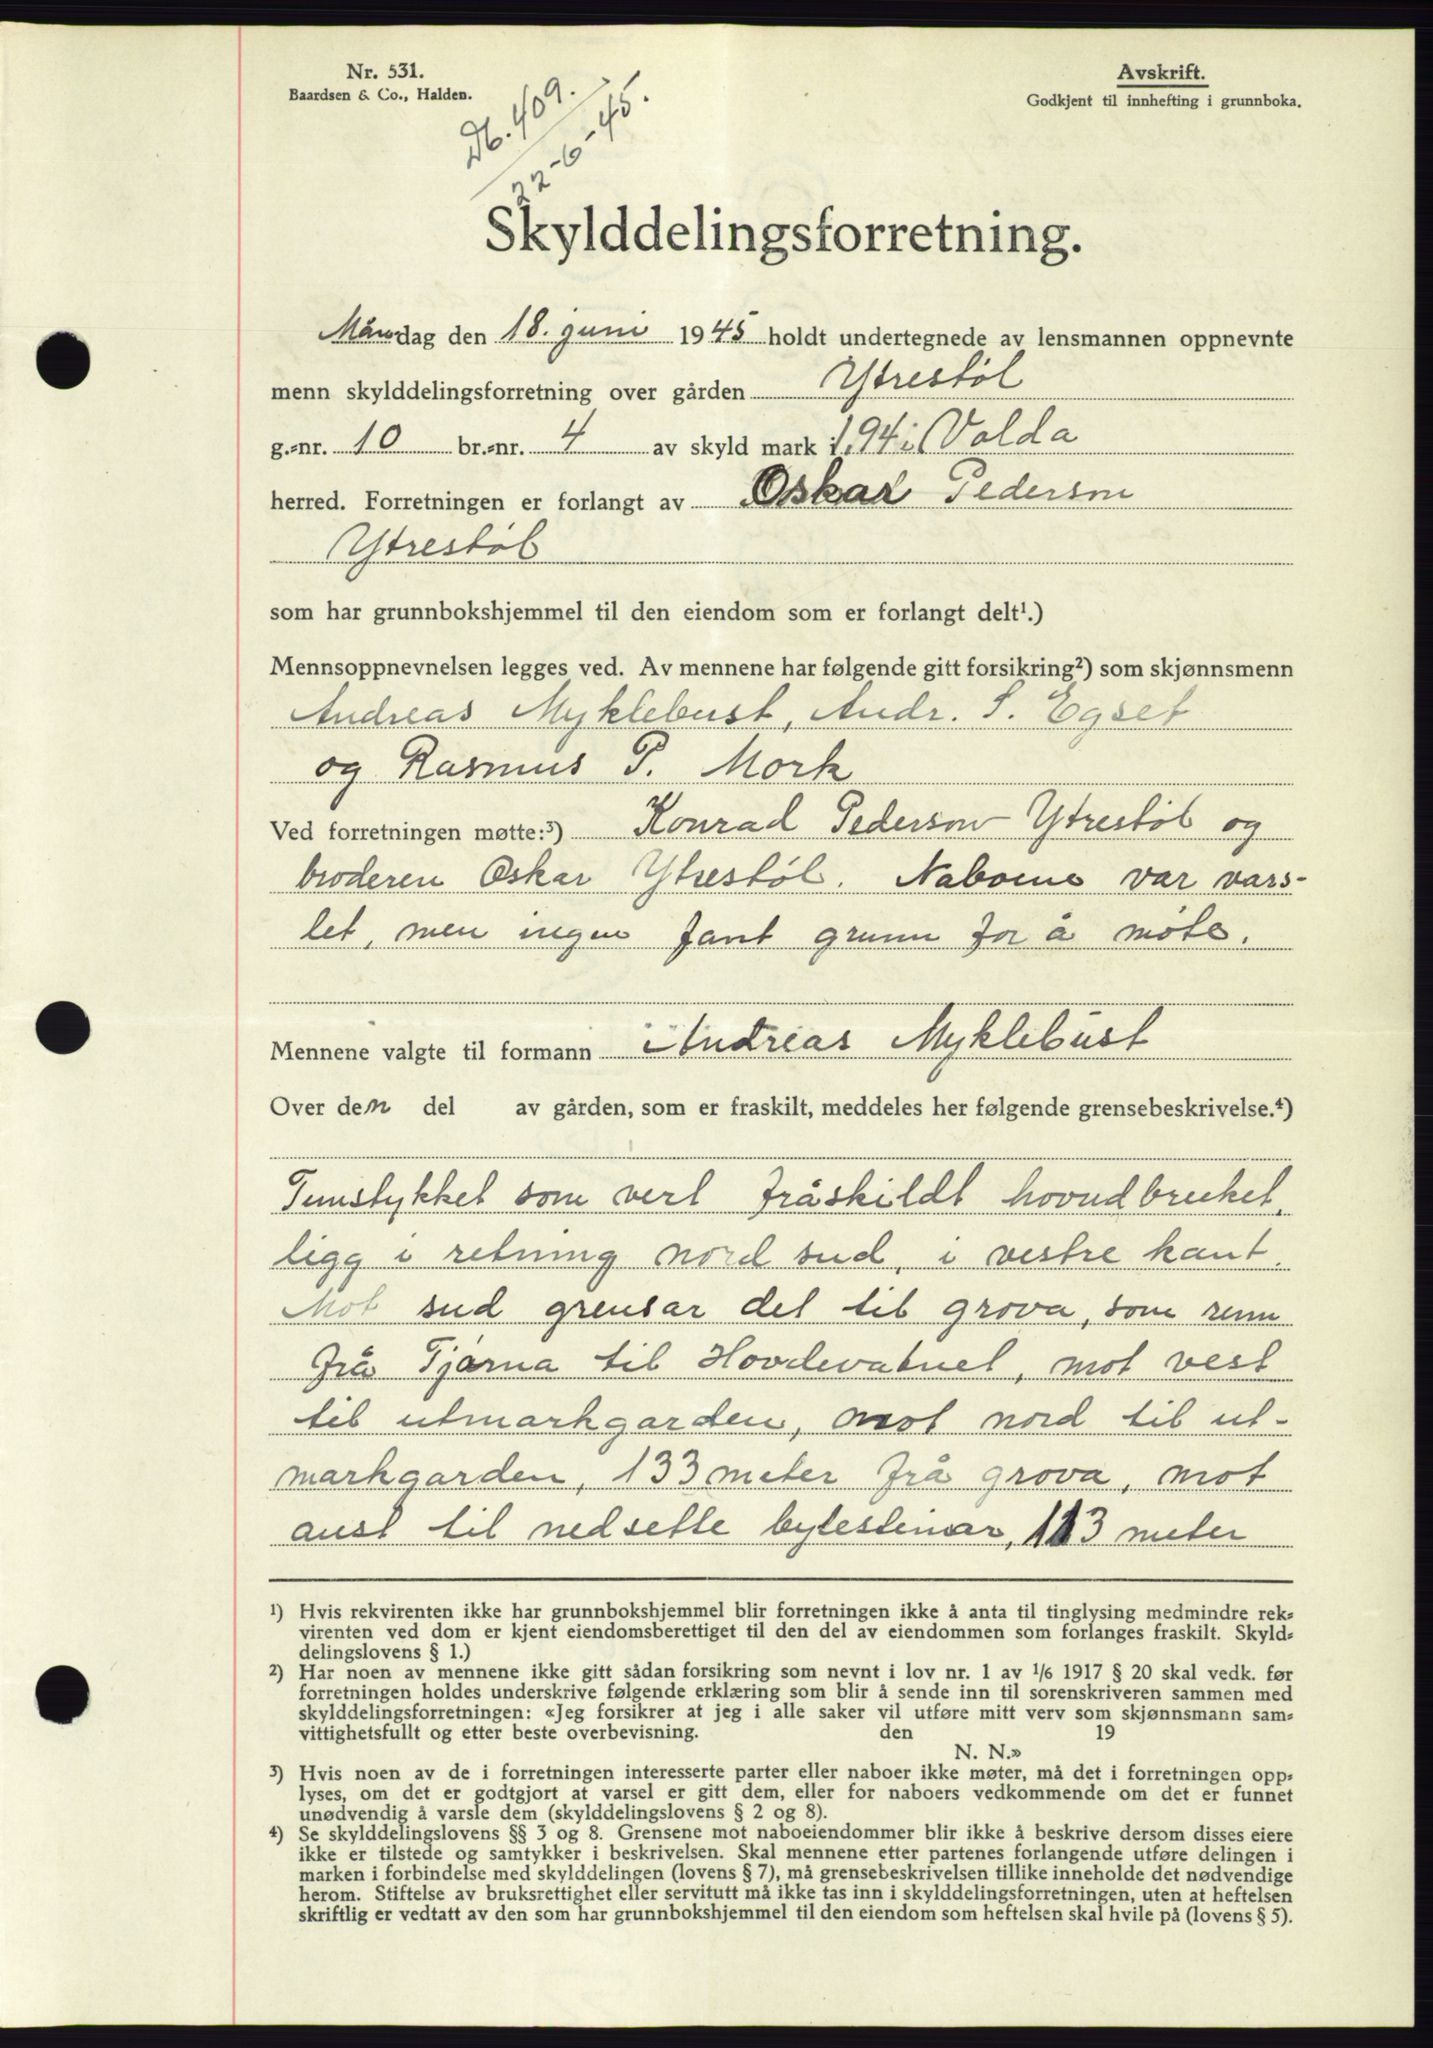 Nr. 531.
Baardsen & Co., Halden.
Avskrift.
Godkjent til innhefting i grunnboka.
Db. 409.
22-6-45.
Skylddelingsforretning.
Måndag den 18. juni 1945 holdt undertegnede av lensmannen oppnevnte
menn skylddelingsforretning over gården Ytrestøl
g.=nr. 10 br.=nr. 4 av skyld mark 1,94 i Volda
herred. Forretningen er forlangt av Oskar Pederson
Ytrestøl
som har grunnbokshjemmel til den eiendom som er forlangt delt¹.)
Mennsoppnevnelsen legges ved. Av mennene har følgende gitt forsikring²) som skjønnsmenn
Andreas Myklebust, Andr. S. Egset
og Rasmus P. Mork
Ved forretningen møtte:³) Konrad Pederson Ytrestøl og
broderen Oskar Ytrestøl. Naboene var vars-
let, men ingen fant grunn for å møte.
Mennene valgte til formann Andreas Myklebust
Over den del av gården, som er fraskilt, meddeles her følgende grensebeskrivelse.⁴)
Tunstykket som vert fråskildt hovudbruket,
ligg i retning nord sud, i vestre kant.
Mot sud grensar det til grova, som renn
frå Tjørna til Hovdevatnet, mot vest
til utmarkgarden, mot nord til ut-
markgarden, 133 meter frå grova, mot
aust til nedsette bytesteinar, 113 meter
¹) Hvis rekvirenten ikke har grunnbokshjemmel blir forretningen ikke å anta til tinglysing medmindre rek=
virenten ved dom er kjent eiendomsberettiget til den del av eiendommen som forlanges fraskilt. Skyld=
delingslovens § 1.)
²) Har noen av mennene ikke gitt sådan forsikring som nevnt i lov nr. 1 av 1/6 1917 § 20 skal vedk. før
forretningen holdes underskrive følgende erklæring som blir å sende inn til sorenskriveren sammen med
skylddelingsforretningen: «Jeg forsikrer at jeg i alle saker vil utføre mitt verv som skjønnsmann sam=
vittighetsfullt og etter beste overbevisning. den 19
N. N.»
³) Hvis noen av de i forretningen interesserte parter eller naboer ikke møter, må det i forretningen opp=
lyses, om det er godtgjort at varsel er gitt dem, eller for naboers vedkommende om det er funnet
unødvendig å varsle dem (skylddelingslovens § 2 og 8).
⁴) Se skylddelingslovens §§ 3 og 8. Grensene mot naboeiendommer blir ikke å beskrive dersom disses eiere
ikke er tilstede og samtykker i beskrivelsen. Skal mennene etter partenes forlangende utføre delingen i
marken i forbindelse med skylddelingen (lovens § 7), må grensebeskrivelsen tillike inneholde det nødvendige
herom. Stiftelse av bruksrettighet eller servitutt må ikke tas inn i skylddelingsforretningen, uten at heftelsen
skriftlig er vedtatt av den som har grunnbokshjemmel til den eiendom som heftelsen skal hvile på (lovens § 5).